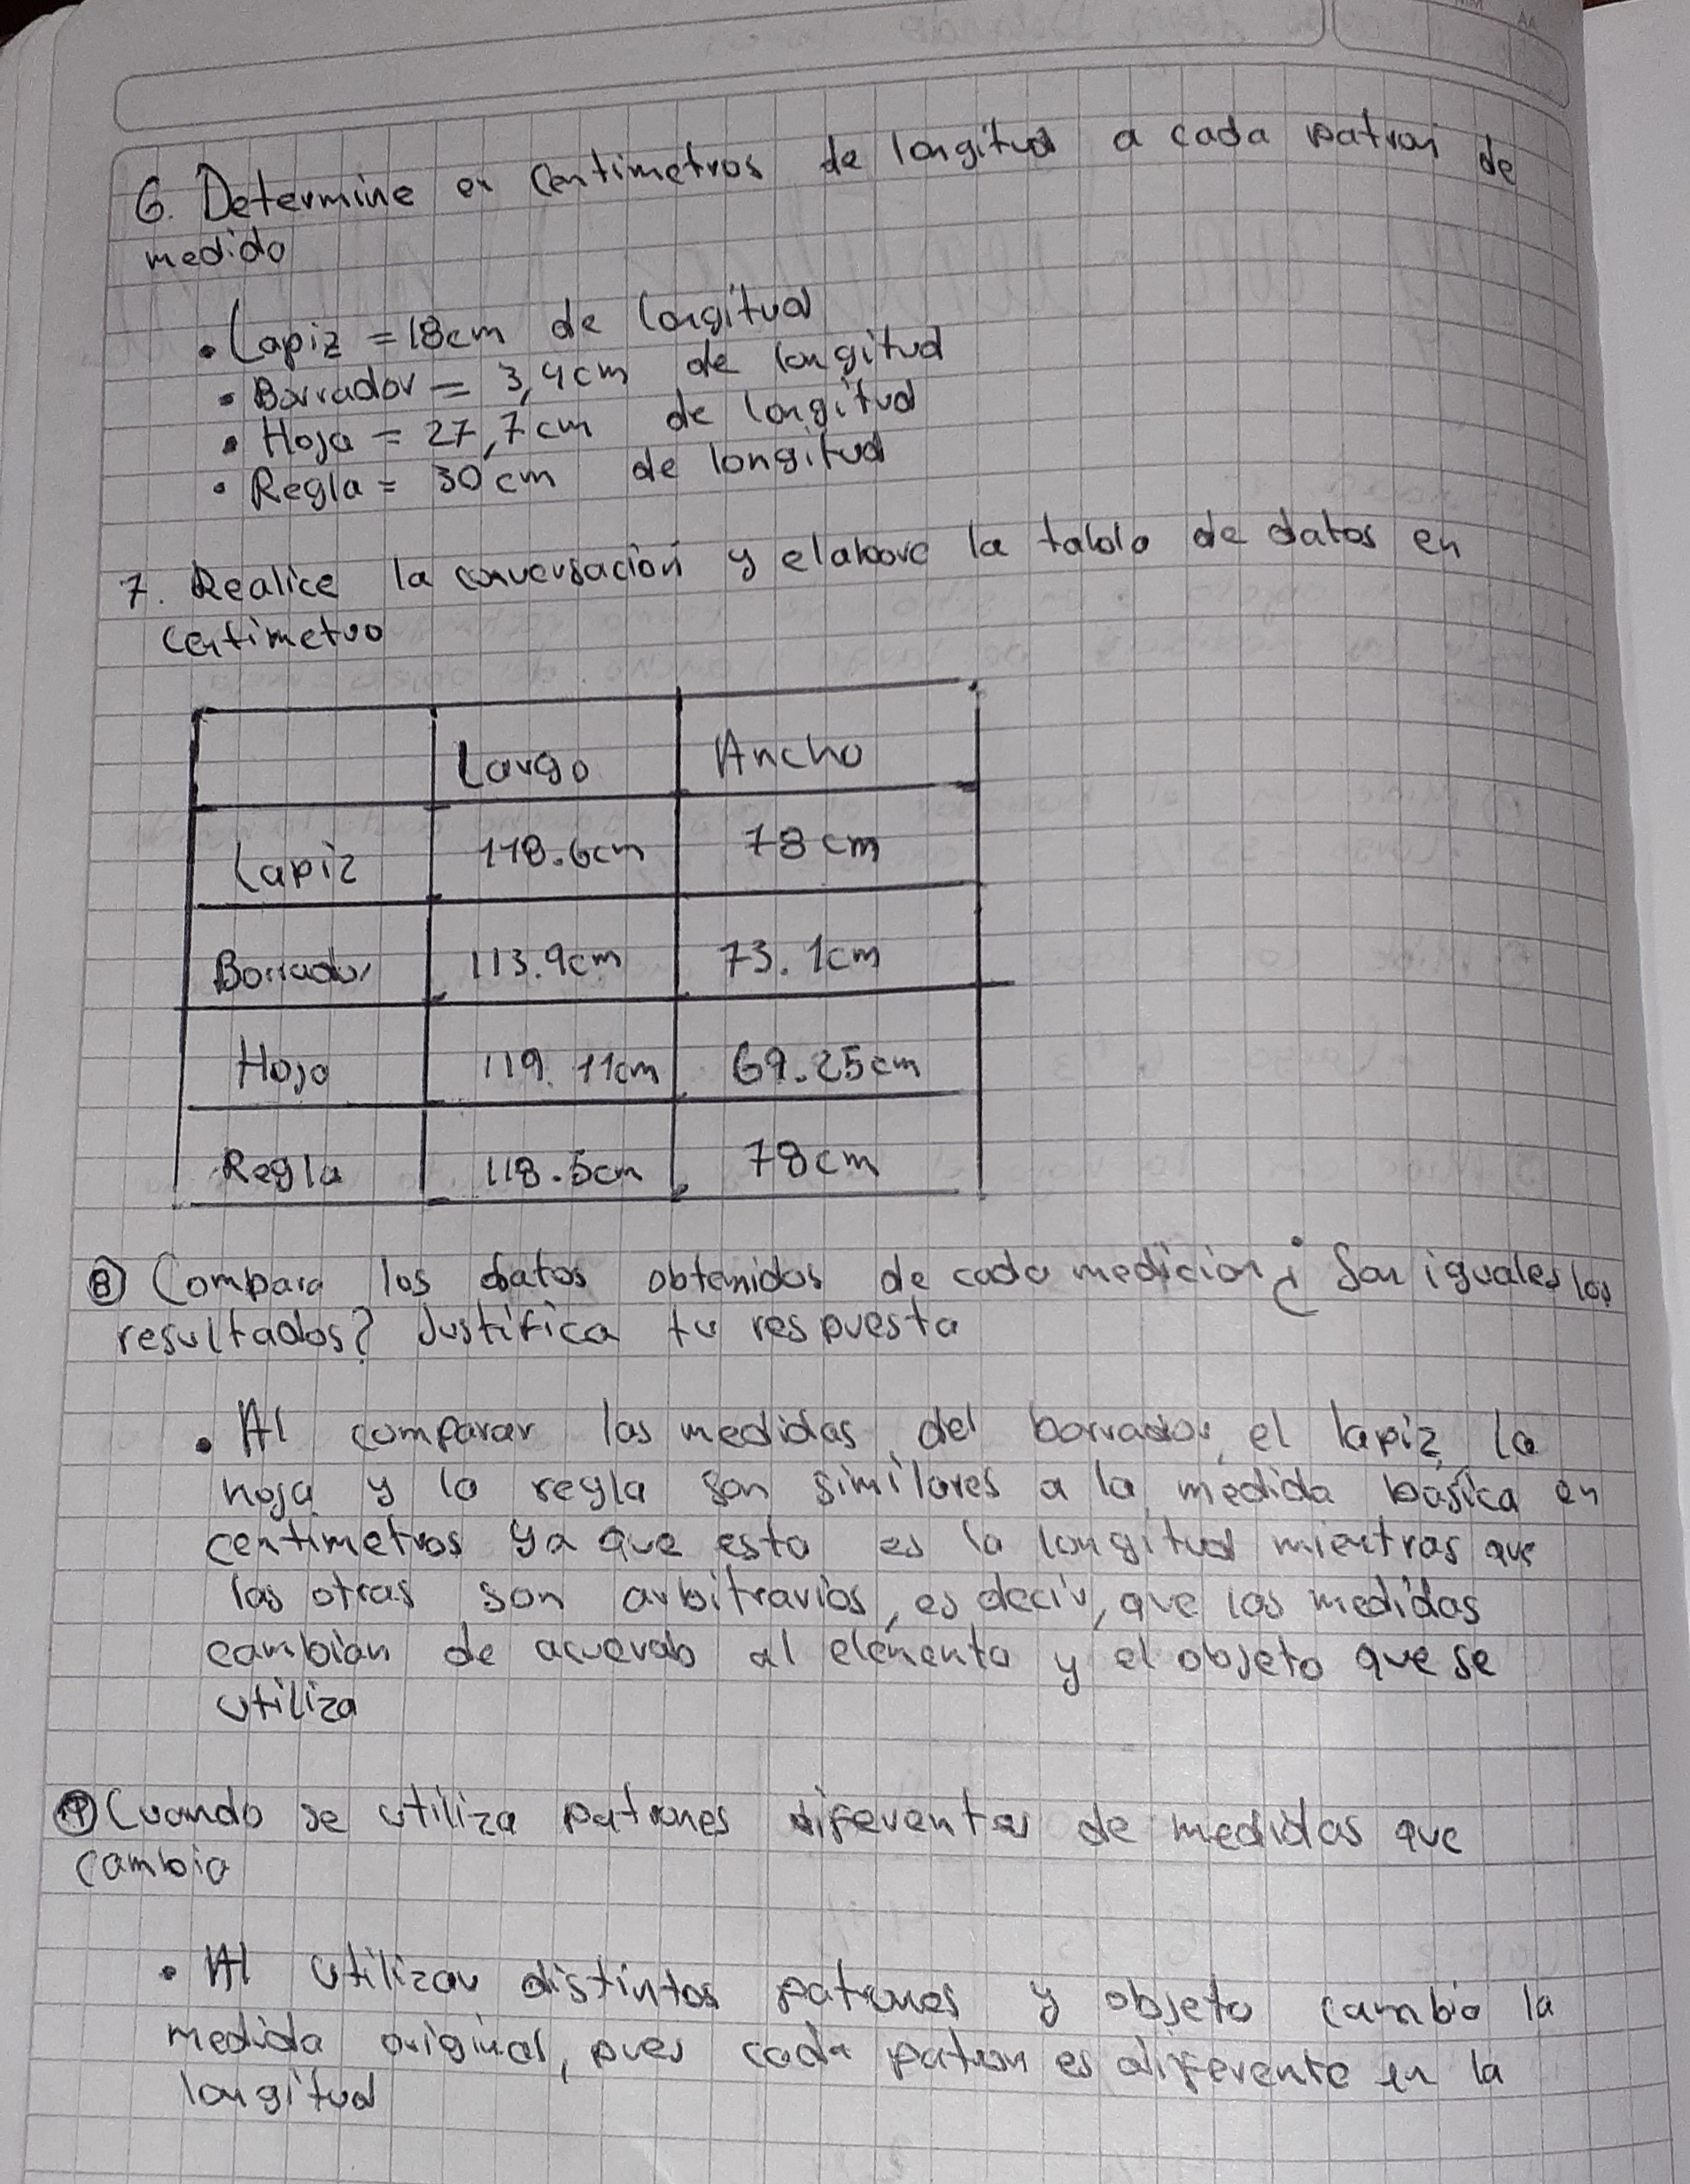 6. Determine en centimetros de longitud a cada patron de
medida
• Lapiz = 18cm de longitud
• Borrador = 3,4cm de longitud
• Hoja = 27,7cm de longitud
• Regla = 30cm de longitud
7. Realice la conversación y elabore la tabla de datos en
centimetro
Largo Ancho
Lapiz 118.6cm 78cm
Borrador 113.9cm 73.1cm
Hoja 119.11cm 69.25cm
Regla 118.5cm 78cm
8 Compara los datos obtenidos de cada medición ¿ Son iguales los
resultados? Justifica tu respuesta
• Al comparar las medidas del borrador, el lapiz, la
hoja y la regla son similares a la medida básica en
centimetros ya que esta es la longitud mientras que
las otras son arbitrarios, es decir, que las medidas
cambian de acuerdo al elemento y el objeto que se
utiliza
9 Cuando se utiliza patrones diferentes de medidas que
cambia
• Al utilizar distintos patrones y objeto cambia la
medida original, pues cada patron es diferente en la
longitud